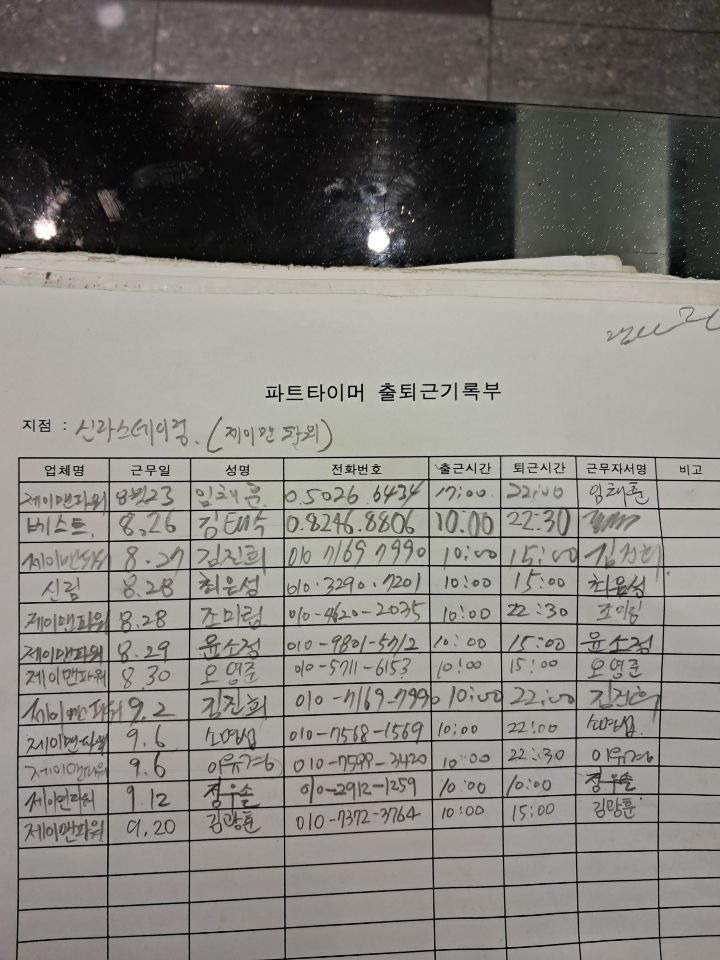 파트타이머 출퇴근기록부
지점 : 신라스테이 (제이맨파워)
업체명 근무일 성명 전화번호 출근시간 퇴근시간 근무자서명 비고
제이맨파워 8.23 임채훈 0.5026.6434 17:00 22:00 임채훈
베스트. 8.26 김태숙 0.8246.8806 10.00 22:30
제이맨파워 8.27 김진희 010 7169 7990 10:00 15:00 김진희
신림 8.28 최은성 010.3290.7201 10:00 15:00 최은성
제이맨파워 8.28 조미림 010-4620-2035 10:00 22:30 조미림
제이맨파워 8.29 윤소정 010-9801-5712 10:00 15:00 윤소정
제이맨파워 8.30 오영준 010-5711-6153 10:00 15:00 오영준
제이맨파워 9.2 김진희 010-7169-7990 10:00 22:00 김진희
제이맨파워 9.6 소명섭 010-7568-1569 10:00 22:00 소명섭
제이맨파워 9.6 이유경 010-7599-3420 10:00 22:30 이유경
제이맨파워 9.12 장우솔 010-2912-1259 10:00 10:00 장우솔
제이맨파워 9.20 김광훈 010-7372-3764 10:00 15:00 김광훈